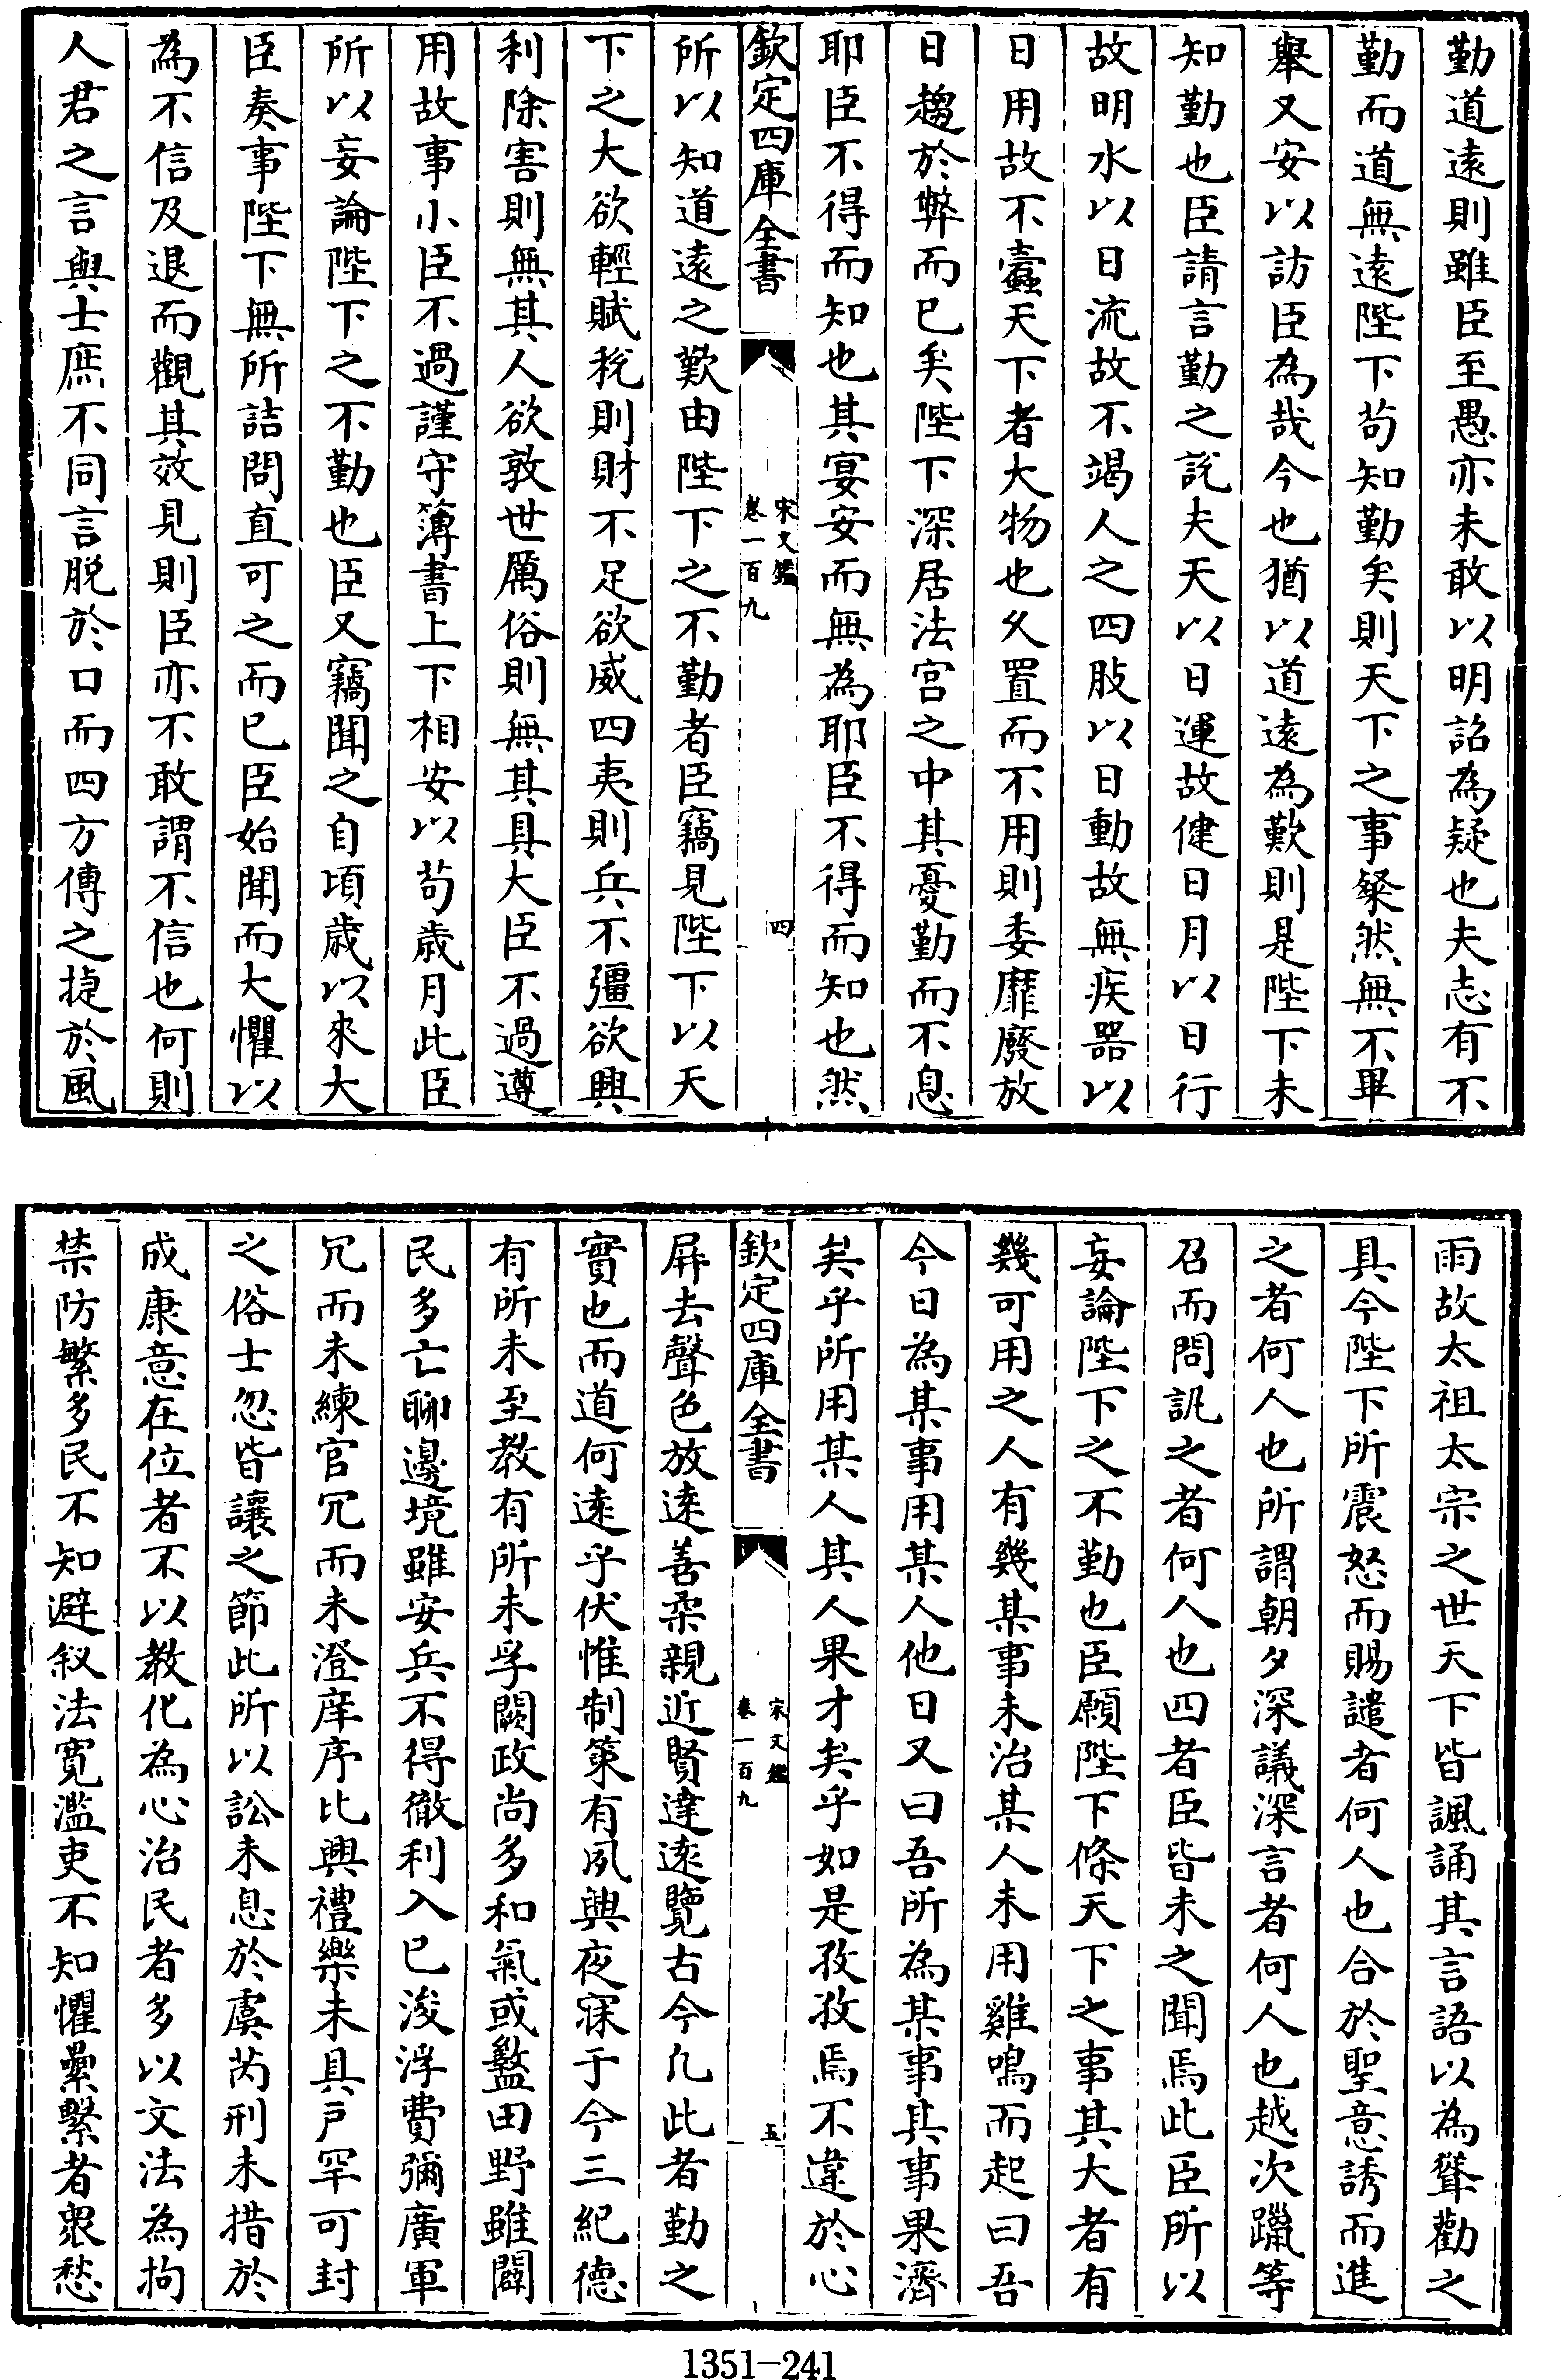 勤道遠則雖臣至愚亦未敢以明詔為疑也夫志有不
勤而道無遠陛下苟知勤矣則天下之事粲然無不畢
舉又安以訪臣為哉今也猶以道遠為歎則是陛下未
知勤也臣請言勤之說夫天以日運故健日月以日行
故明水以日流故不竭人之四肢以日動故無疾器以
日用故不蠹天下者大物也久置而不用則委靡廢放
日趨於弊而已矣陛下深居法宫之中其憂勤而不息
耶臣不得而知也其宴安而無為耶臣不得而知也然
欽定四庫全書
宋文鑑
卷一百九
四
所以知道遠之歎由陛下之不勤者臣竊見陛下以天
下之大欲輕賦稅則財不足欲威四夷則兵不彊欲興
利除害則無其人欲敦世厲俗則無其具大臣不過遵
用故事小臣不過謹守簿書上下相安以苟歲月此臣
所以妄論陛下之不勤也臣又竊聞之自頃歲以來大
臣奏事陛下無所詰問直可之而已臣始聞而大懼以
為不信及退而觀其效見則臣亦不敢謂不信也何則
人君之言與士庶不同言脱於口而四方傳之捷於風
雨故太祖太宗之世天下皆諷誦其言語以為聳勸之
具今陛下所震怒而賜譴者何人也合於聖意誘而進
之者何人也所謂朝夕深議深言者何人也越次躐等
召而問訊之者何人也四者臣皆未之聞焉此臣所以
妄論陛下之不勤也臣願陛下條天下之事其大者有
幾可用之人有幾某事未治某人未用雞鳴而起曰吾
今日為某事用某人他日又曰吾所為某事其事果濟
矣乎所用某人其人果才矣乎如是孜孜焉不違於心
欽定四庫全書
宋文鑑
卷一百九
五
屏去聲色放逺善柔親近賢達逺覽古今凡此者勤之
實也而道何逺乎伏惟制策有夙興夜寐于今三紀德
有所未至教有所未孚闕政尚多和氣或盭田野雖闢
民多亡聊邊境雖安兵不得徹利入已浚浮費彌廣軍
冗而未練官冗而未澄庠序比興禮樂未具戶罕可封
之俗士忽皆讓之節此所以訟未息於虞芮刑未措於
成康意在位者不以教化為心治民者多以文法為拘
禁防繁多民不知避叙法寬濫吏不知懼纍繫者衆愁
1351-241